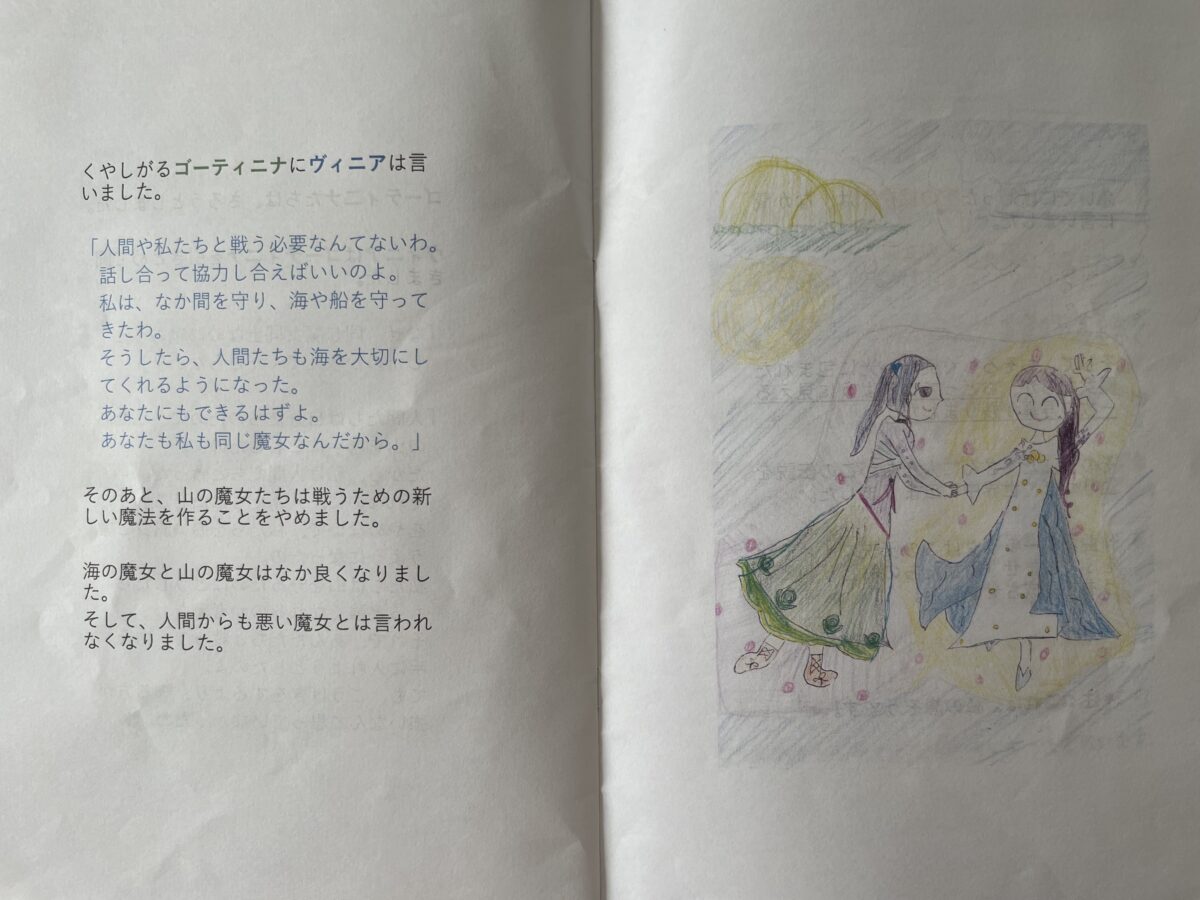 くやしがるゴーティニナにヴィニアは言
いました。
「人間や私たちと戦う必要なんてないわ。
話し合って協力し合えばいいのよ。
私は、なか間を守り、海や船を守って
きたわ。
そうしたら、人間たちも海を大切にし
てくれるようになった。
あなたにもできるはずよ。
あなたも私も同じ魔女なんだから。」
そのあと、山の魔女たちは戦うための新
しい魔法を作ることをやめました。
海の魔女と山の魔女はなか良くなりまし
た。
そして、人間からも悪い魔女とは言われ
なくなりました。